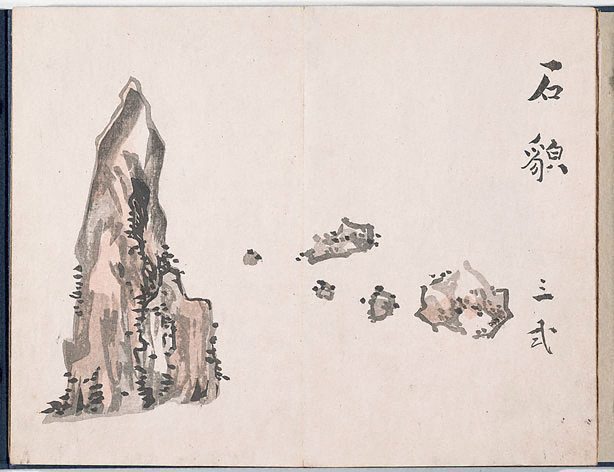 石貌
三式